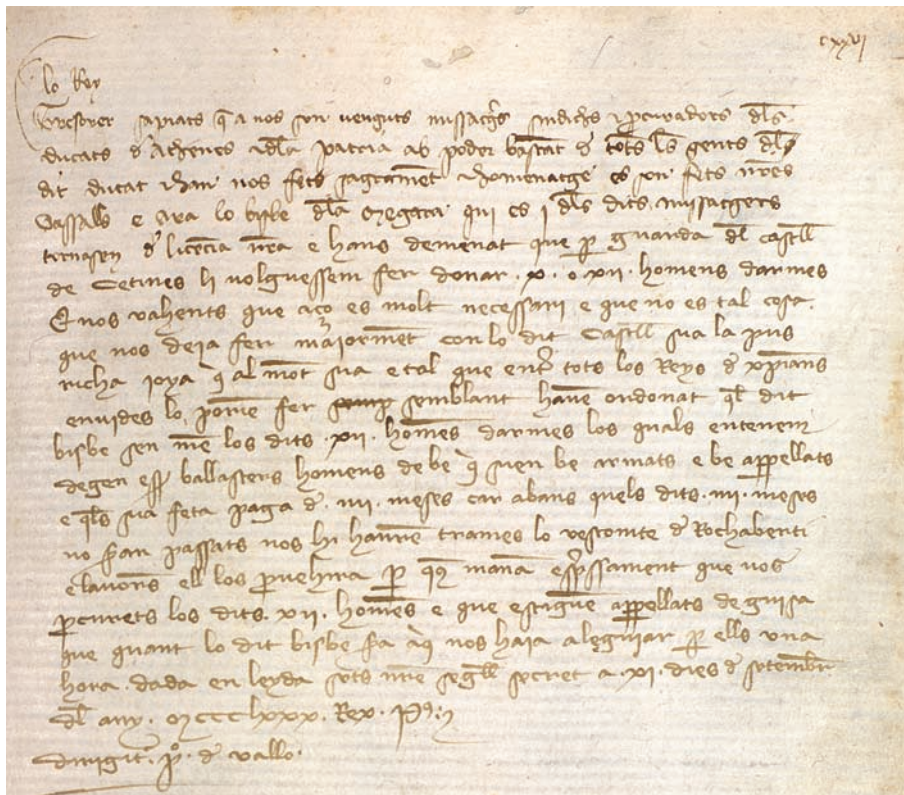 cxxvi
lo Rey
Tresorer sapiats q̄ a nos son venguts missatg̃s sindichs ⁊ p̱curadors dl̃s
ducats d̃ Athenes ⁊ dl̃a patria ab poder bastāt d̃ totes les gents dl̃
dit ducat ⁊ han nos fets sagramēt ⁊ homenatge es son fets nr̃es
vassalls e Ara lo bisbe dl̃a Megara qui es i dl̃s dits missatgers
tornasen d̃ licēcia nr̃a e hans demenat que p̱ guarda dl̃ castell
de Cetines li volguessem fer donar .x. o xii. homens darmes
E nos vahents que aço es molt necessari e que no es tal cosa
que nos deja fer maiormēt con lo dit Castell sia la pus
richa joya q̇ al mōt sia e tal que entr̃ tots los Reys d̃ xp̄ians
envides lo poriē fer semblant havē ordonat ql̃ dit
bisbe sen mē los dits .xii. homēs darmes los quals entenem
degen ess̃ ballasters homens de be q̇ sien be armats e be app̱ellats
e ql̃s sia feta paga d̃ .iiii. meses car abans quels dits .iiii. meses
no s̃an passats nos hi haurē trames lo vescomte d̃ Rochaberti
e lavors ell los p̱vehira p̱ q̇ manā exp̃ssament que vos
p̱curets los dits .xii. homēs e que estiguē app̱ellats de guisa
que quant lo dit bisbe s̃a aq̇ nos haia a leguiar p̱ ells una
hora. dada en leyda sots nr̃e segell secret a xi. dies d̃ setembr̃
dl̃ any .Mccclxxx. Rex. P̱.
dirigit̃. P̱o. d̃ vallo.